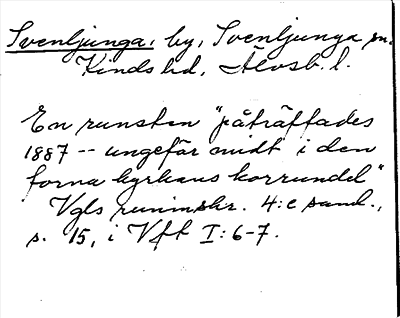 Svenljunga, by, Svenljunga sn.
Kinds hd, Älvsb. l.
En runsten "påträffades
1887 -- ungefär midt i den
forna kyrkans korrundel"
Vgls runinskr. 4:e saml.,
s. 15, i Vft I:6-7.